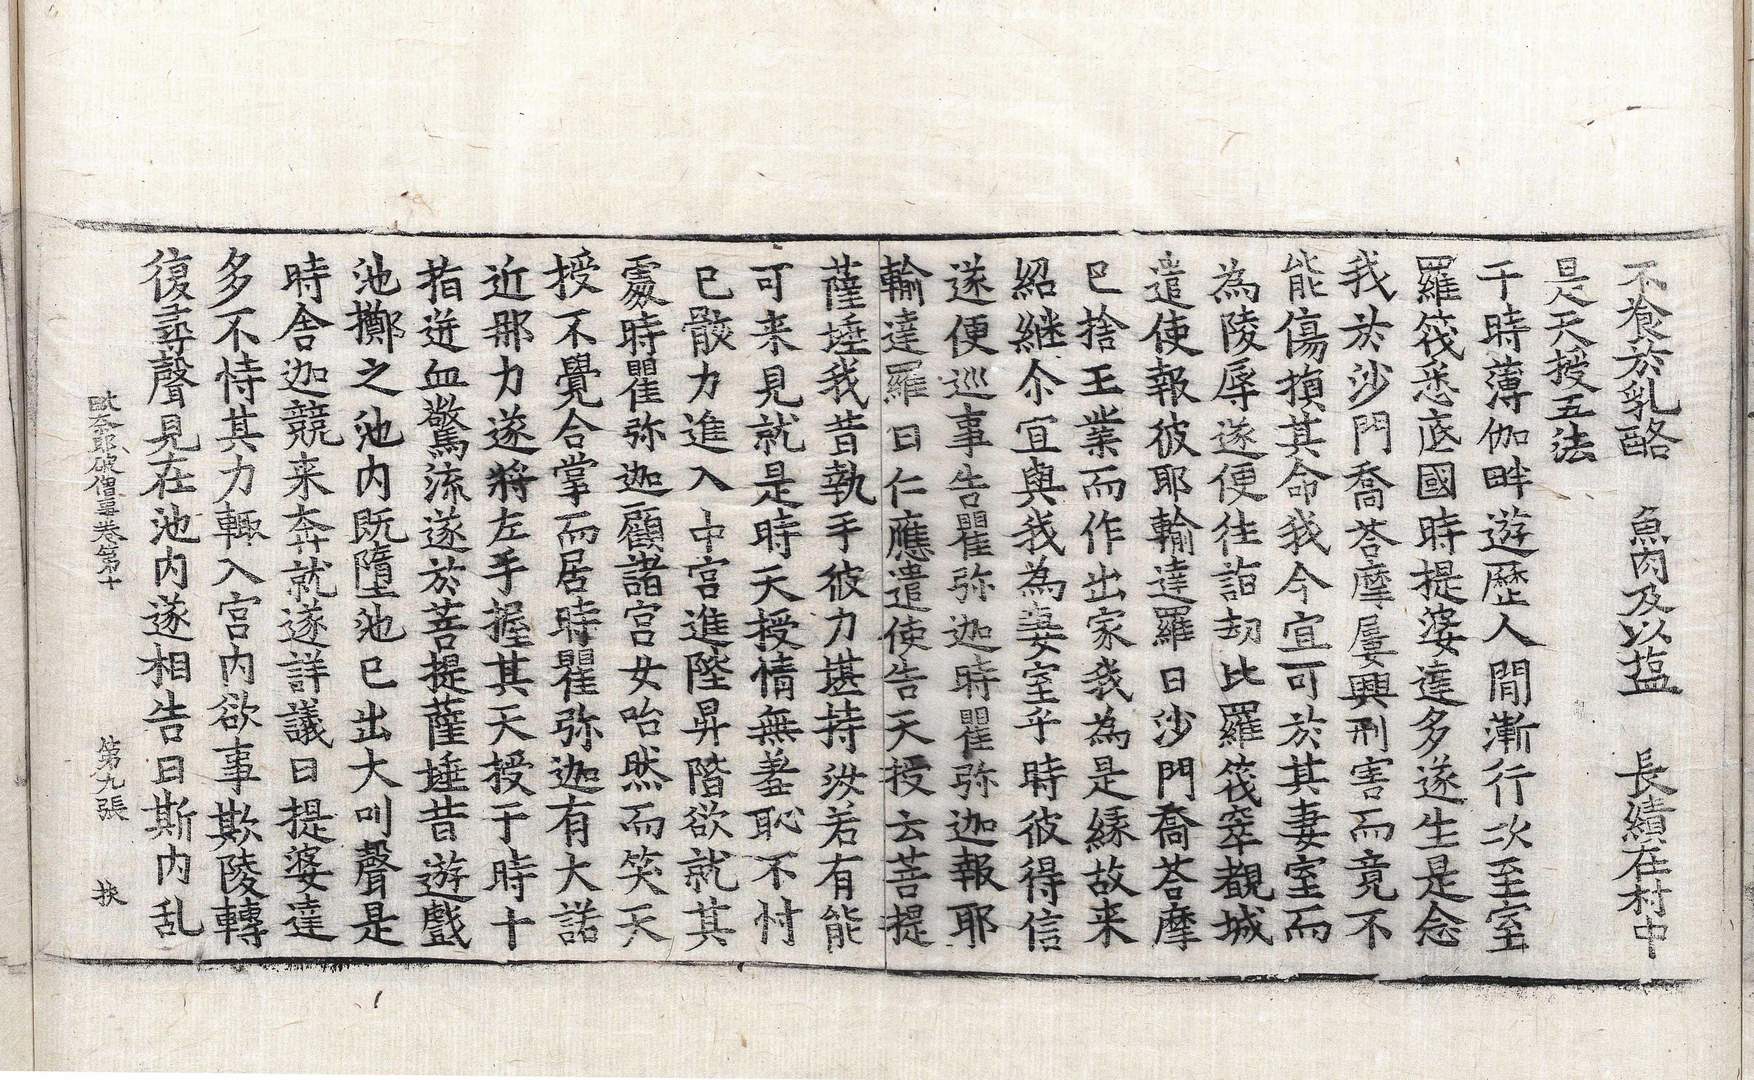 不飡於乳酪　魚肉及以塩　長績在村中
是天授五法
于時薄伽畔遊歷人間漸行次至室
羅筏悉底國時提婆達多遂生是念
我於沙門喬荅摩屢興刑害而竟不
能傷損其命我今宜可於其妻室而
為陵辱遂便往詣劫比羅筏窣覩城
遣使報彼耶輸達羅曰沙門喬荅摩
已捨王業而作出家我為是緣故来
紹継尒宜與我為妻室乎時彼得信
遂便巡事告瞿弥迦時瞿弥迦報耶
輸達羅曰仁應遣使告天授云菩提
薩埵我昔執手彼力堪持汝若有能
可来見就是時天授情無羞恥不忖
已骸力進入中宮進陞昇階欲就其
處時瞿弥迦顧諸宮女咍然而笑天
授不覺合掌而居時瞿弥迦有大諾
近那力遂將左手握其天授于時十
指迸血驚流遂於菩提薩埵昔遊戲
池擲之池内既墮池已出大叫聲是
時舍迦競来奔就遂詳議曰提婆達
多不恃其力輙入宮内欲事欺陵轉
復尋聲見在池内遂相告曰斯内乱
毗奈耶破僧事卷第十　第九張　挾